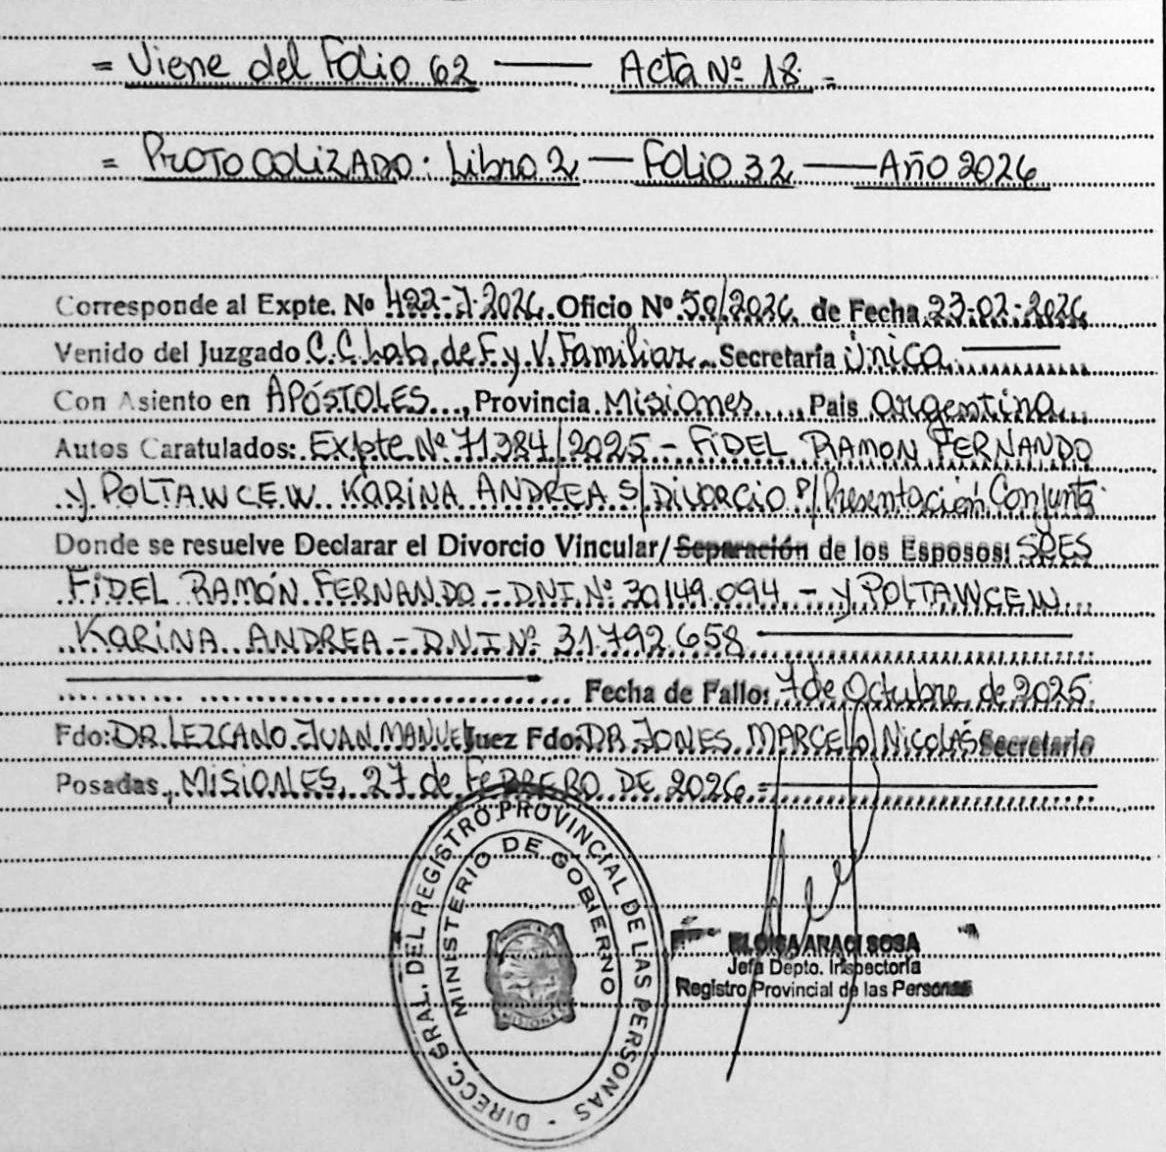 = Viene del Folio 62 —— Acta Nº 18 =
= PROTOCOLIZADO: Libro 2 — Folio 32 —— Año 2026
Corresponde al Expte. Nº 422-J-2026. Oficio Nº 50/2026. de Fecha 23-02-2026
Venido del Juzgado C.C.Lab. de F. y V. Familiar. Secretaría Única.
Con Asiento en APÓSTOLES..., Provincia Misiones..... País Argentina...
Autos Caratulados: Expte Nº 71384/2025 - FIDEL RAMON FERNANDO
y POLTAWCEW KARINA ANDREA S/Divorcio P/Presentación Conjunta
Donde se resuelve Declarar el Divorcio Vincular/Separación de los Esposos: SRES
FIDEL RAMÓN FERNANDO - DNI.Nº 30149.094 - y POLTAWCEW
KARINA ANDREA - D.N.I Nº 31.792.658
Fecha de Fallo: 7 de Octubre de 2025.
Fdo: DR. LEZCANO JUAN MANUEL Juez Fdo: DR JONES MARCELO NICOLÁS Secretario
Posadas, MISIONES, 27 de FEBRERO DE 2026 =
DIRECC. GRAL. DEL REGISTRO PROVINCIAL DE LAS PERSONAS -
MINISTERIO DE GOBIERNO
MISIONES
ELOISA ARACI SOSA
Jefa Depto. Inspectoría
Registro Provincial de las Personas